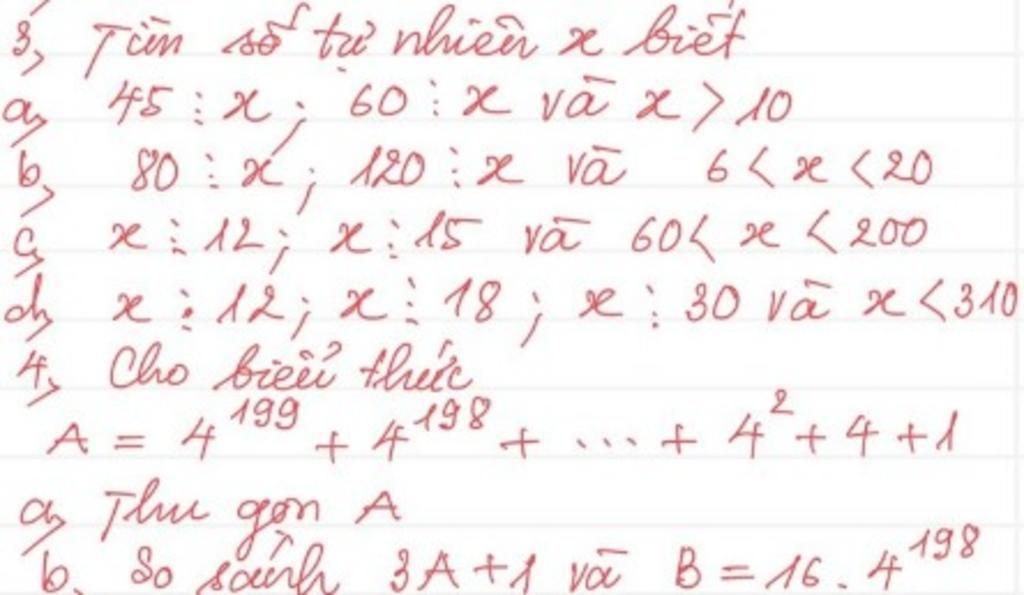 3, Tìm số tự nhiên x biết
a, 45 ⋮ x ; 60 ⋮ x và x > 10
b, 80 ⋮ x ; 120 ⋮ x và 6 < x < 20
c, x ⋮ 12 ; x ⋮ 15 và 60 < x < 200
d, x ⋮ 12 ; x ⋮ 18 ; x ⋮ 30 và x < 310
4, Cho biểu thức
A = 4¹⁹⁹ + 4¹⁹⁸ + ... + 4² + 4 + 1
a, Thu gọn A
b, So sánh 3A + 1 và B = 16 . 4¹⁹⁸